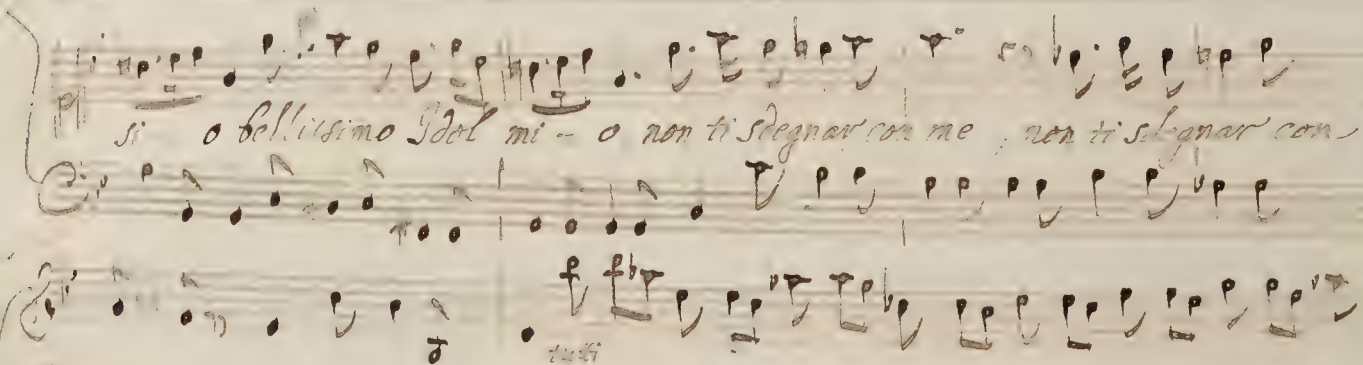 si o bellissimo Idol mi - o non ti sdegnar con me, non ti sdegnar con
tutti